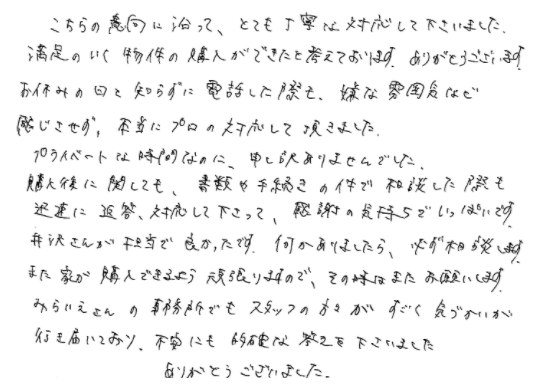 こちらの意向に沿って、とても丁寧な対応して下さいました。
満足のいく物件の購入ができたと考えております。ありがとうございます。
お休みの日と知らずに電話した際も、嫌な雰囲気など
感じさせず、本当にプロの対応して頂きました。
プライベートな時間なのに、申し訳ありませんでした。
購入後に関しても、書類や手続きの件で相談した際も
迅速に返答、対応して下さって、感謝の気持ちでいっぱいです。
井沢さんが担当で良かったです。何かありましたら、必ず相談します。
また家が購入できるよう頑張りますので、その時はまたお願いします。
みらいえさんの事務所でもスタッフの方々がすごく気づかいが
行き届いており、不安にも的確な答えを下さいました
ありがとうございました。